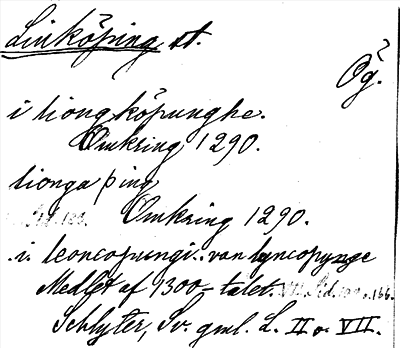 Linköping, st.
Ög.
i liongköpunghe.
Omkring 1290.
lionga þing
Omkring 1290.
i leoncopungi.. van lyncopynge
Medlet af 1300-talet.
Schlyter, Sv. gml. L. II o. VII.